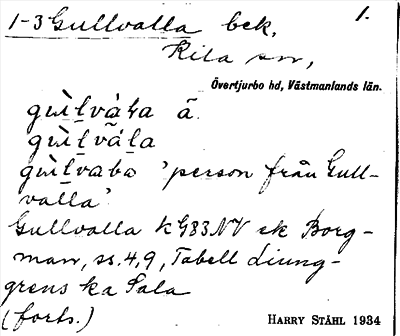 1-3 Gullvalla bek. 1.
Kila sn,
Övertjurbo hd, Västmanlands län.
gùḷvàḷa ã.
gùḷvãḷa
gùḷvabo 'person från Gull-
valla'
Gullvalla k G83 NV ek Borg-
man, ss. 4, 9, Tabell Ljung-
grens ka Sala
(forts.)
HARRY STÅHL 1934